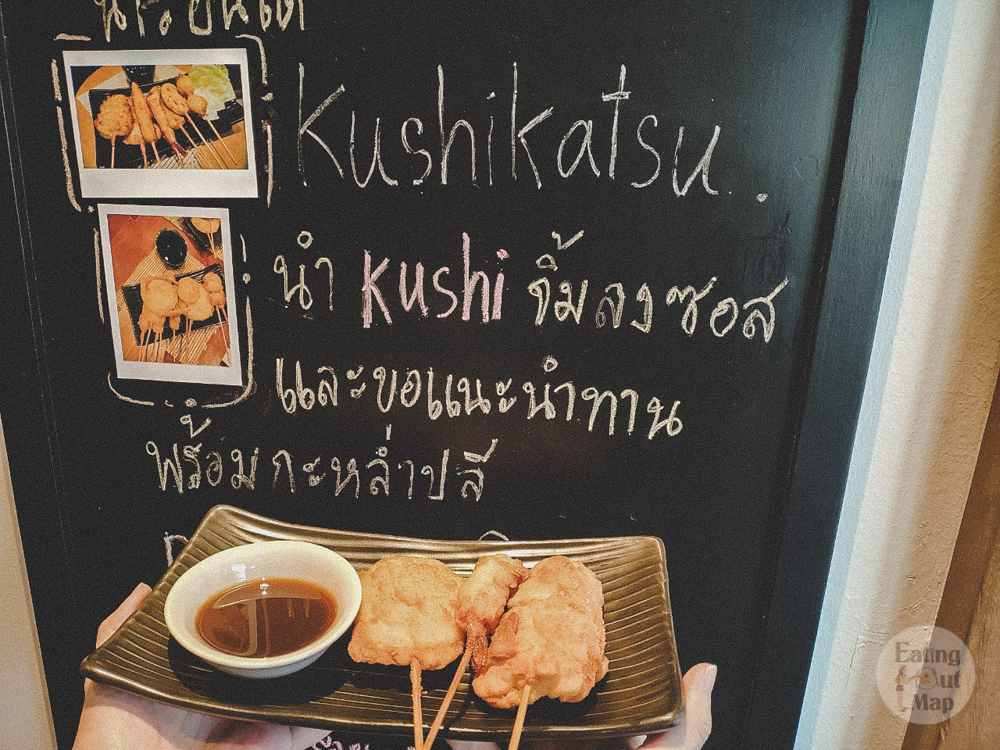 Kushikatsu.
นำ kushi จิ้มลงซอส
และขอแนะนำทาน
พร้อมกะหล่ำปลี
Eating
Out
Map